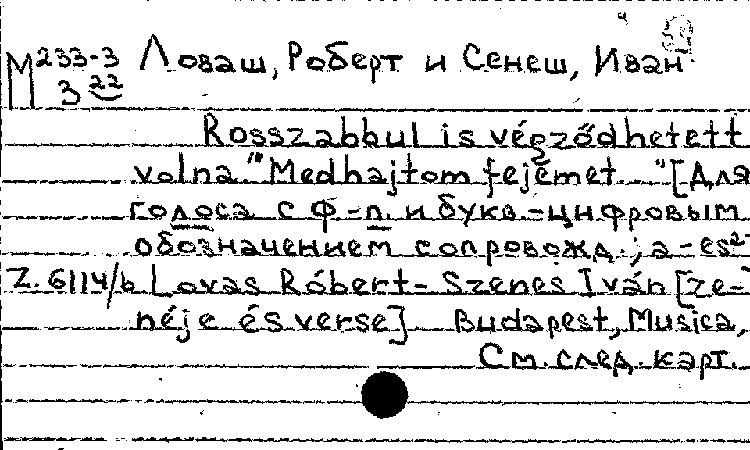 М 233-3 Ловаш, Роберт и Сенеш, Иван
3 22
Rosszabbul is végződhetett
volna "Medhajtom fejémet "[Для
голоса с ф-п. и букв.-цифровым
обозначением сопровожд.; a-es²-
Z. 6114/b Lovas Róbert-Szenes Iván [ze-
néje és verse] Budapest, Musica,
См. след. карт.